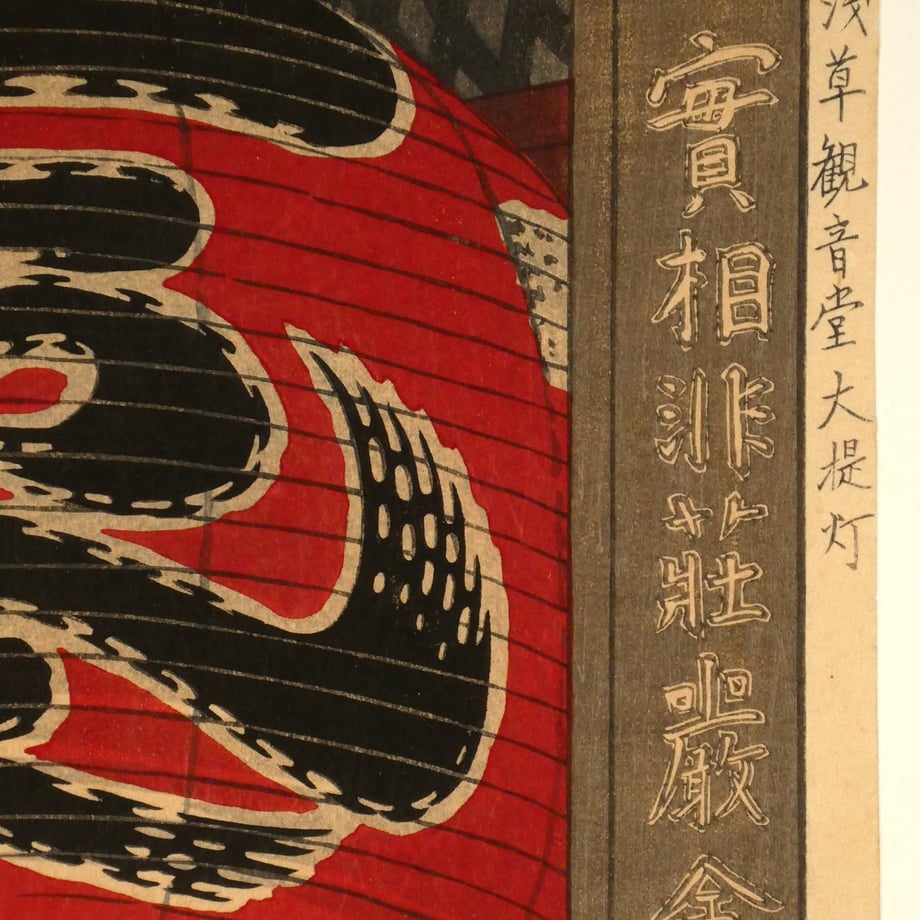 浅草観音堂大提灯
實相非莊嚴金